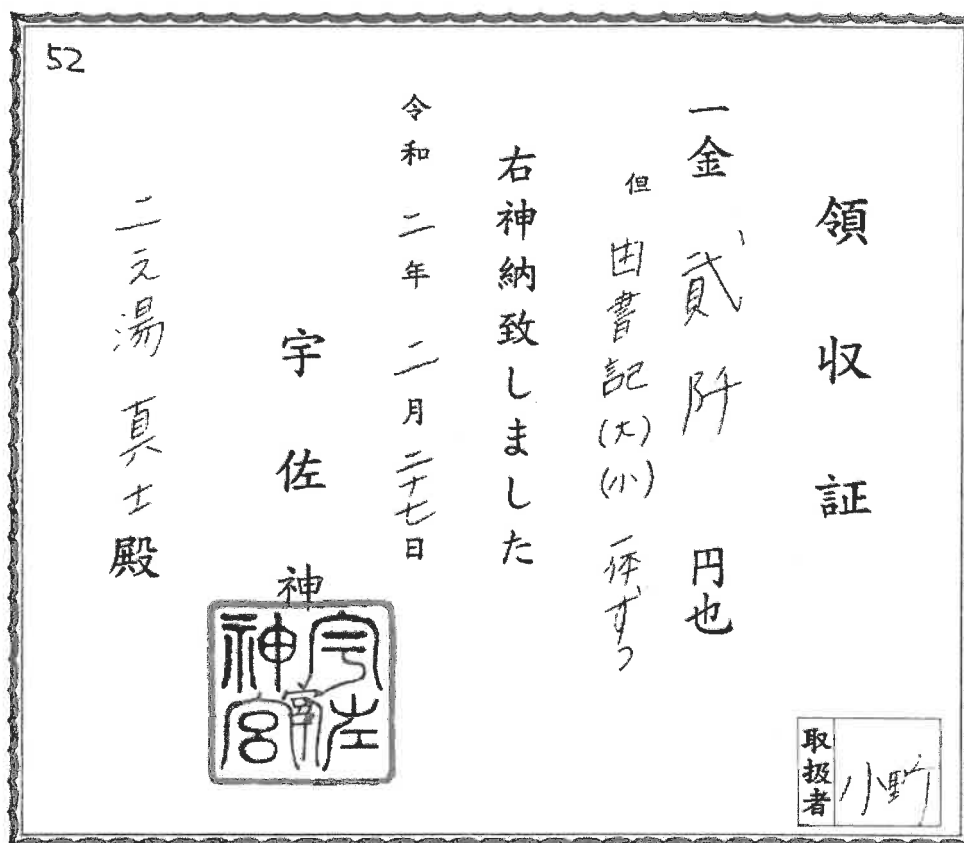 52
領収証
一金 貳阡 円也
但 由書記(大)(小) 一体ずつ
右神納致しました
令和 二年 二月 二十七日
宇佐神宮
宇佐神宮
二之湯 真士殿
取扱者 小野